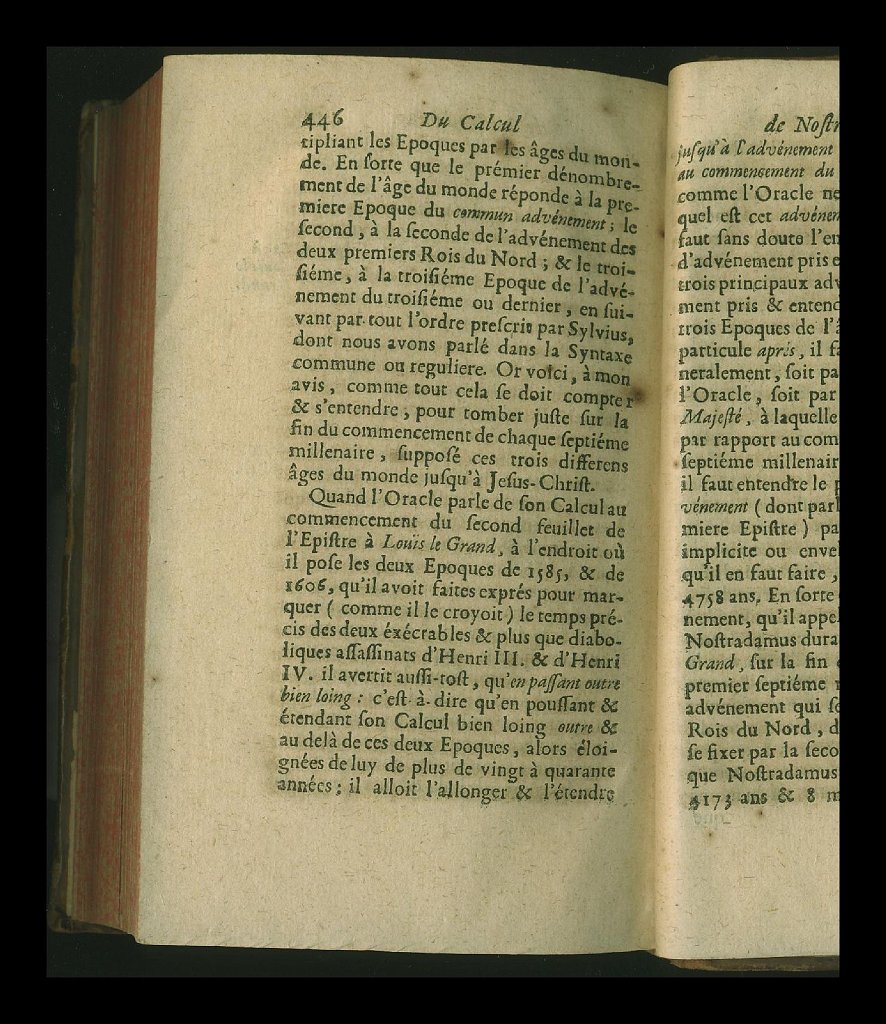 446 Du Calcul
tipliant les Epoques par les âges du mon-
de. En ſorte que le prémier dénombre-
ment de l'âge du monde réponde à la pre-
miere Epoque du commun advénement; le
ſecond, à la ſeconde de l'advénement des
deux premiers Rois du Nord; & le troi-
ſiéme, à la troiſiéme Epoque de l'advé-
nement du troiſiéme ou dernier, en ſui-
vant par-tout l'ordre preſcrit par Sylvius,
dont nous avons parlé dans la Syntaxe
commune ou reguliere. Or voici, à mon
avis, comme tout cela ſe doit compter
& s'entendre, pour tomber juſte ſur la
fin du commencement de chaque ſeptiéme
millenaire, ſuppoſé ces trois differens
âges du monde juſqu'à Jeſus-Chriſt.
Quand l'Oracle parle de ſon Calcul au
commencement du ſecond feuillet de
l'Epiſtre à Louis le Grand, à l'endroit où
il poſe les deux Epoques de 1585, & de
1606, qu'il avoit faites exprés pour mar-
quer ( comme il le croyoit ) le temps pré-
cis des deux éxécrables & plus que diabo-
liques aſſaſſinats d'Henri III. & d'Henri
IV. il avertit auſſi-toſt, qu'en paſſant outre
bien loing : c'eſt-à-dire qu'en pouſſant &
étendant ſon Calcul bien loing outre &
au delà de ces deux Epoques, alors éloi-
gnées de luy de plus de vingt à quarante
années; il alloit l'allonger & l'étendre
de Noſtr
juſqu'à l'advénement
au commencement du
comme l'Oracle ne
quel eſt cet advénem
faut ſans doute l'en
d'advénement pris e
trois principaux adv
ment pris & entend
trois Epoques de l'â
particule après, il fa
neralement, ſoit pa
l'Oracle, ſoit par
Majeſté, à laquelle
par rapport au com
ſeptiéme millenair
il faut entendre le p
vénement ( dont parl
miere Epiſtre ) pa
implicite ou envel
qu'il en faut faire,
4758 ans. En ſorte
nement, qu'il appel
Noſtradamus dura
Grand, ſur la fin
premier ſeptiéme
advénement qui ſe
Rois du Nord, d
ſe fixer par la ſeco
que Noſtradamus
4173 ans & 8 m